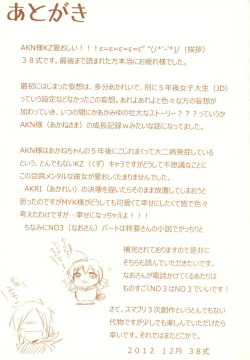 あとがき
AKN様KZ愛おしい！！！ε=ε=ε=ε=ε" "(/*'-'*)/（挨拶）
３８式です。最後まで読まれた方本当にお疲れ様でした。
最初にはじまった妄想は、多分あかれいで、別に５年後女子大生（JD）
っていう設定などなかったこの妄想。あれよあれよと色々な方の妄想が
加わっていき、いつの間にかあかみゆの壮大なストーリー？？？っていうか
AKN様KZ（あかねさま）の成長記録ｗみたいな話になってました。
AKN様はあかねちゃんの５年後にこじれまくって大二病発症している
という、とんでもないKZ（くず）キャラですがどうして不思議なことに
この豆腐メンタルな彼女が愛おしくたまりませんでした。
AKRI（あかれい）の決裂を描いたらそのまま放置してしまおうと
思ったのですがMYK様がどうしても可愛くて幸せにしたくて皆で色々
考えたわけですが…幸せになっちゃえよ！！！
ちなみにNO３（なおさん）パートは柊要さんの小説でがっちりと
補完されておりますので是非に
そちらも読んでいただきたいです。
なおさんが電話かけてくるあたりは
ものすごくNO３はNO３でいいです！
さて。スマプリ３次創作というとんでもない
代物ですが少しでも楽しんでいただけたら
幸いです。それではまたどこかで。
２０１２　１２月　３８式